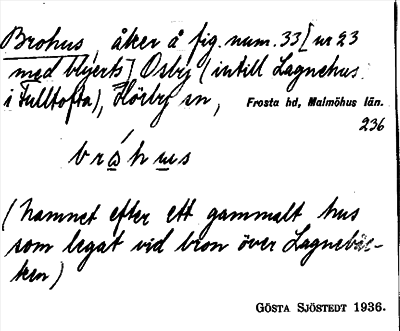 Brohus, åker å fig. num. 33 [nr 23
med blyerts] Osby (intill Lagnehus
i Fulltofta), Hörby sn, Frosta hd, Malmöhus län.
236
bråhus
(Namnet efter ett gammalt hus
som legat vid bron över Lagnebäc-
ken)
GÖSTA SJÖSTEDT 1936.